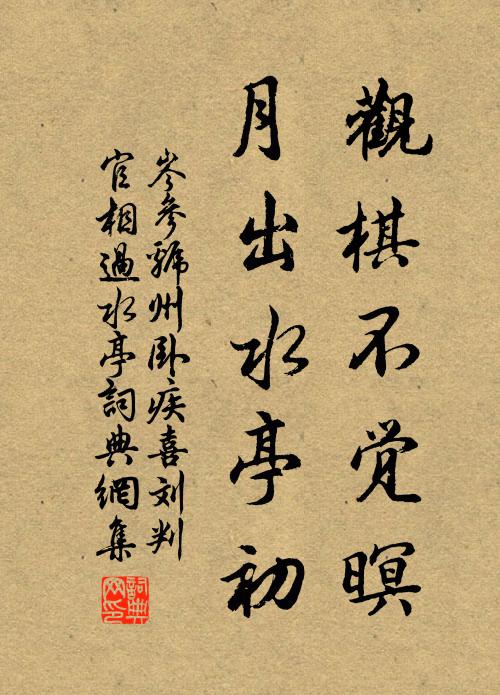 觀棋不觉暝
月出水亭初
岑參虢州卧疾喜刘判
官相過水亭詞典網集
詞典网印